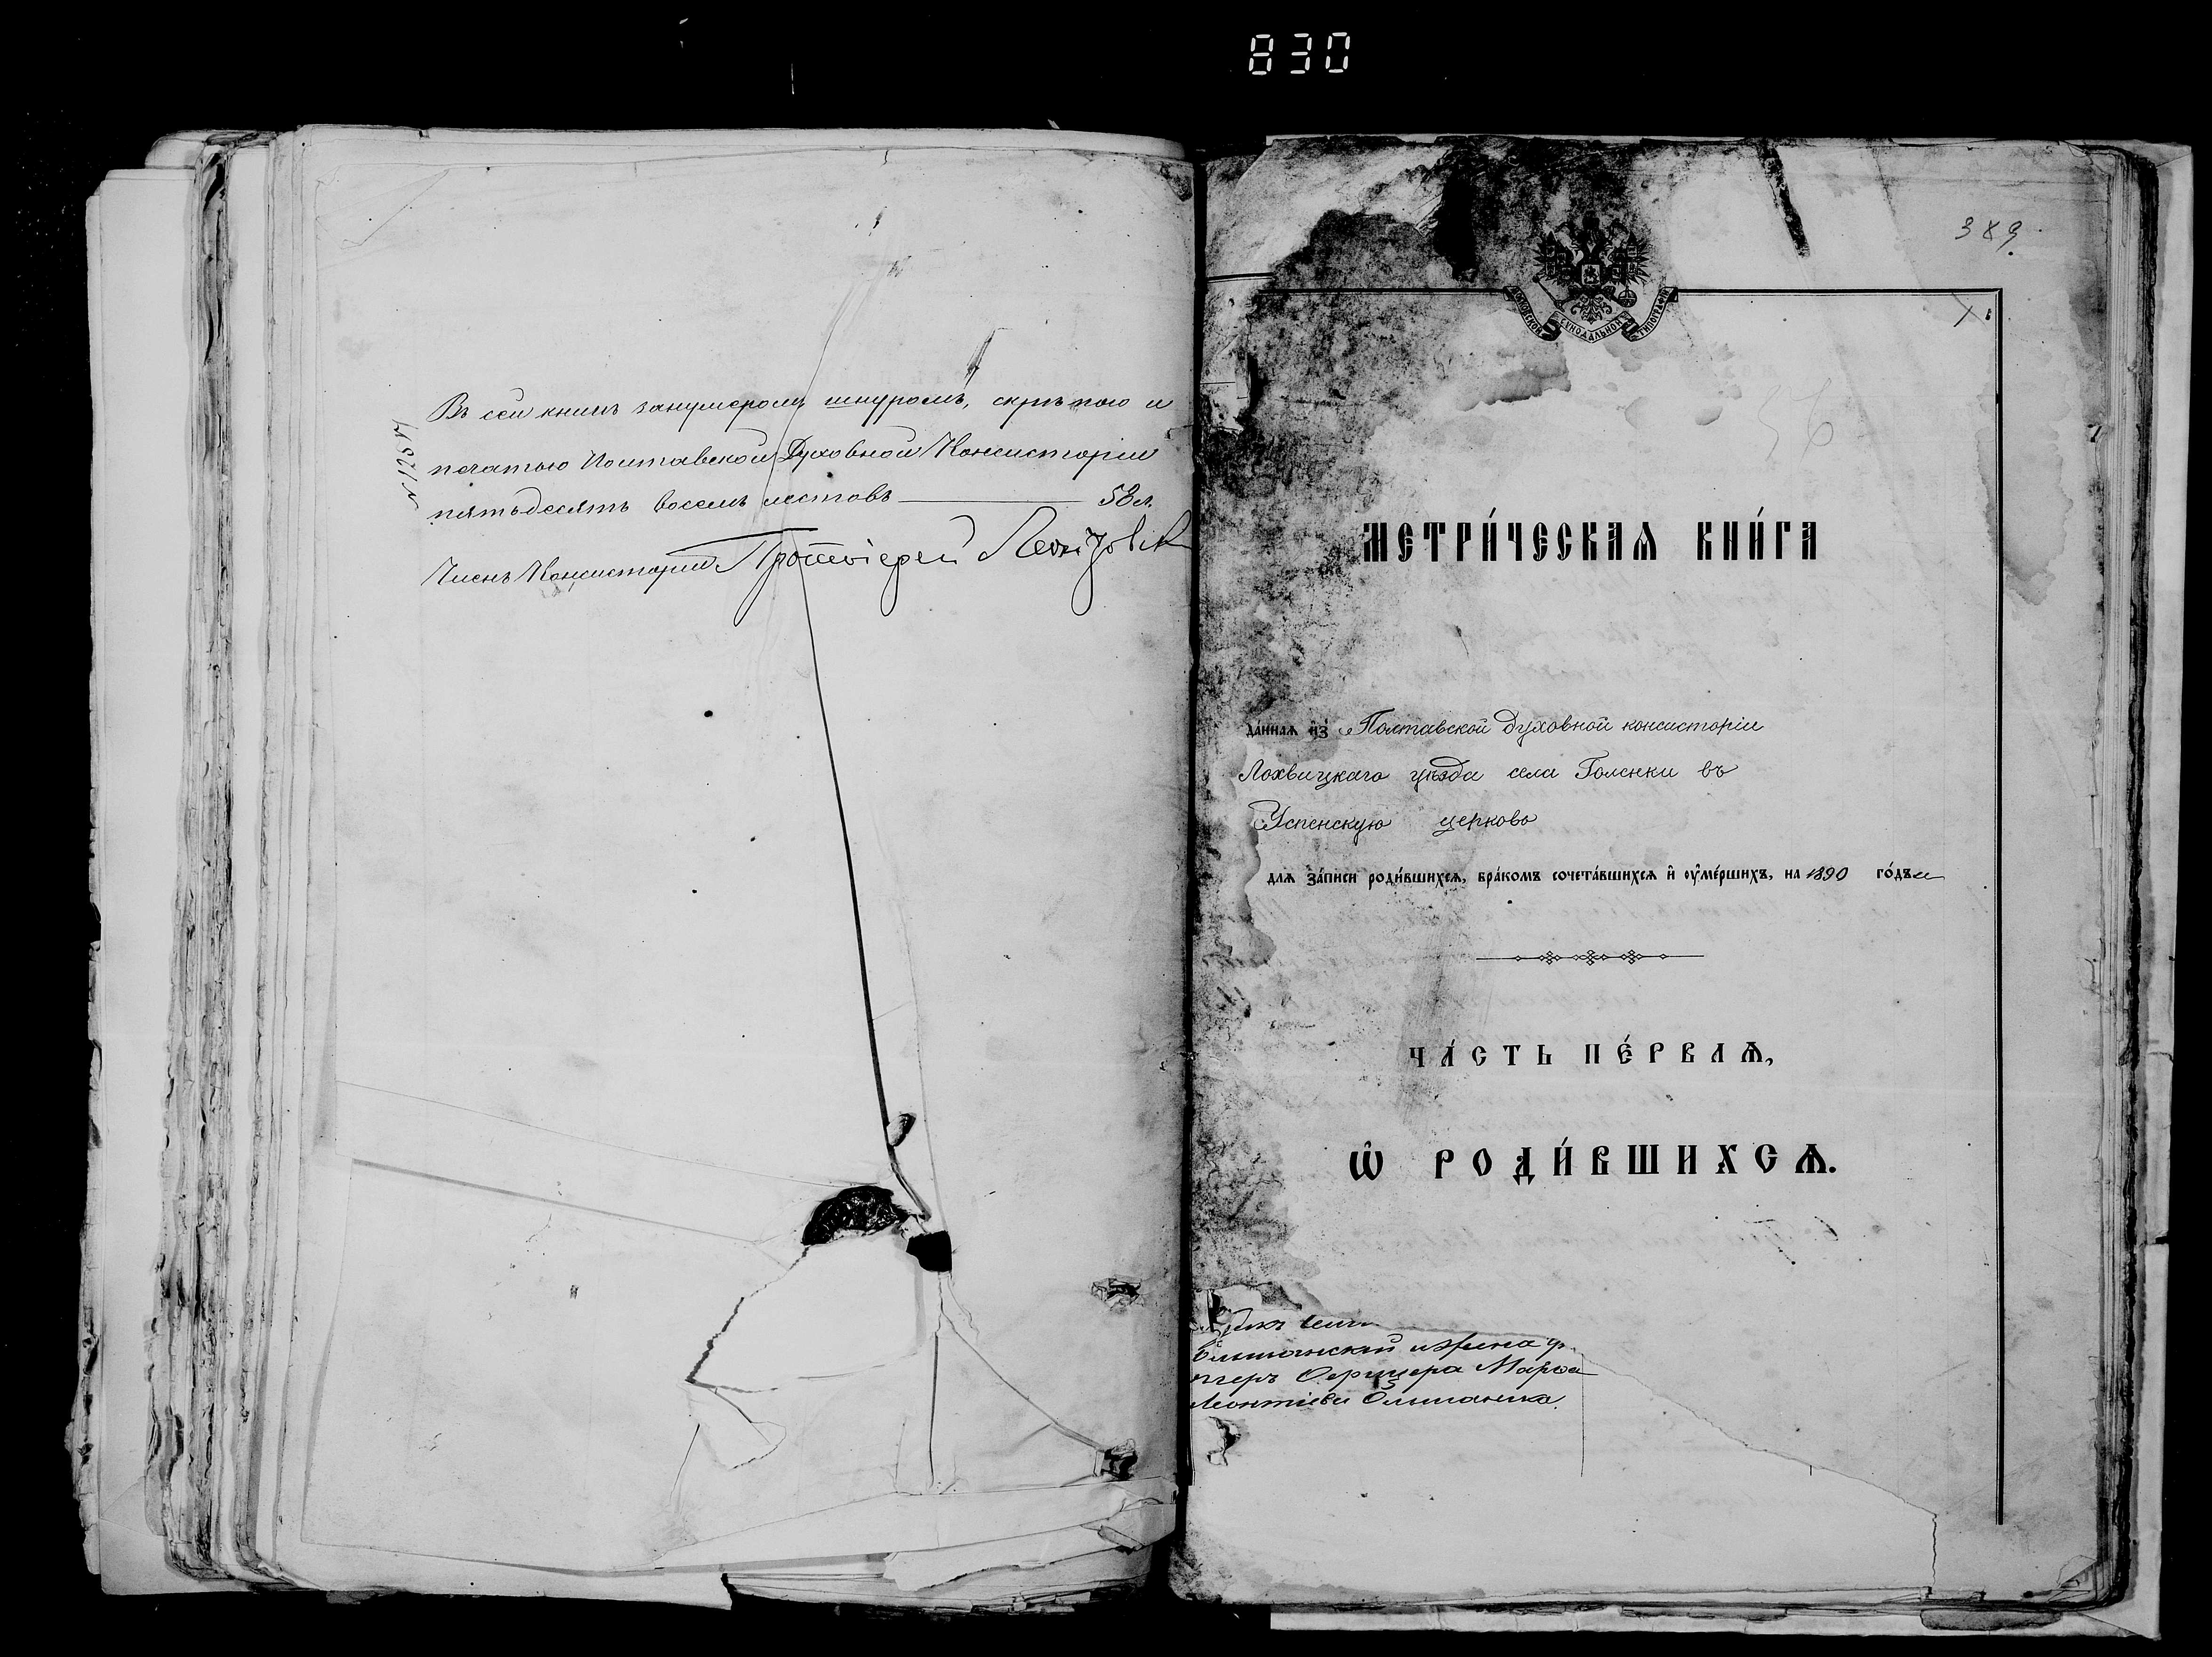 830
Въ сей книгѣ занумерому шнуромъ, скрѣпою и
печатью Полтавской Духовной Консисторіи
пятьдесятъ восемь листовъ — 58 л.
Членъ Консисторіи Протоіерей
389
МОСКОВСКОЙ СѴНОДАЛЬНОЙ ТИПОГРАФІИ
56
МЕТРИ́ЧЕСКАѦ КНИ́ГА
да́ннаѧ и҆з̾ Полтавской духовной консисторіи
Лохвицкаго уѣзда села Голенки въ
Успенскую церковь
длѧ за́писи роди́вшихсѧ, бра́комъ сочета́вшихсѧ и҆ ᲂу҆ме́ршихъ, на 1890 го́дъ
ЧА́СТЬ ПЕ́РВАѦ,
Ѡ҆ РОДИ́ВШИХСѦ.
Ольшанскій и жена
Офицера Марѳа
Леонтіева Ольшанска